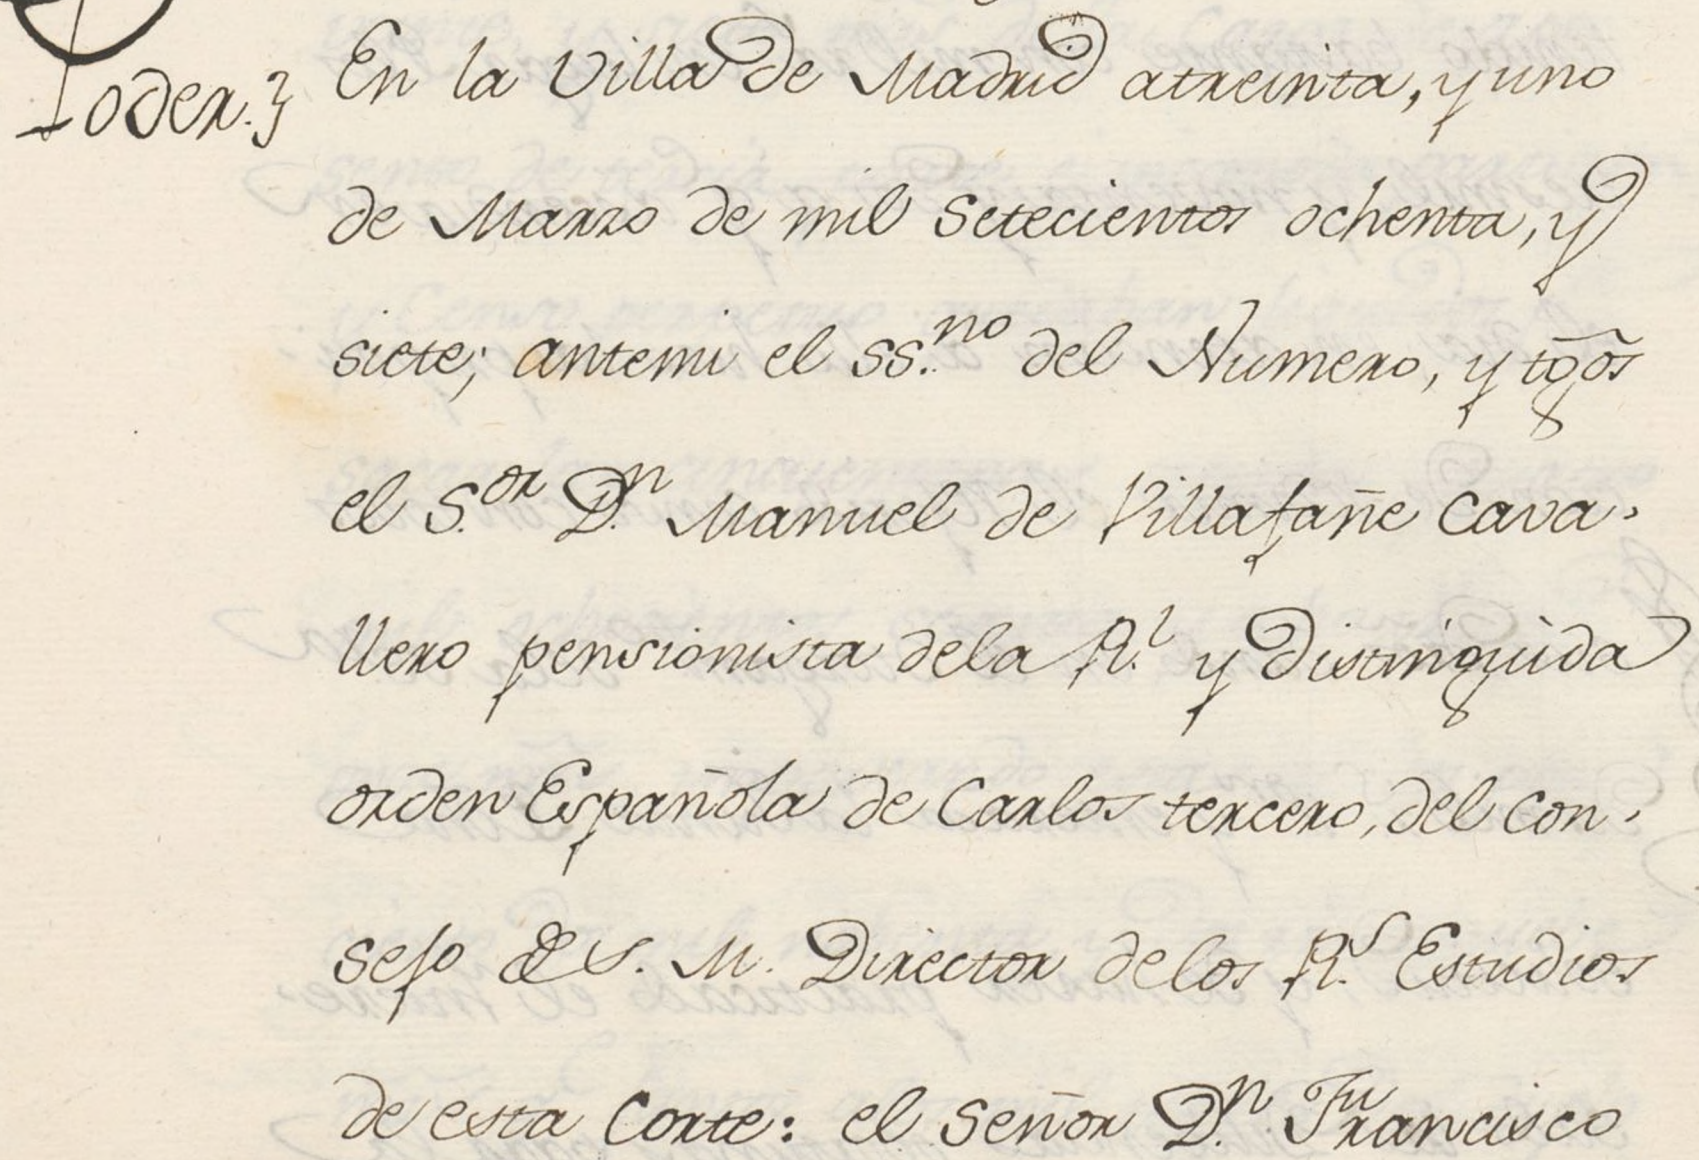 Poder.} En la Villa de Madrid atreinta, y uno
de Marzo de mil setecientos ochenta, y
siete; antemi el ss.no del Numero, y tg̃os
el S.or D.n Manuel de Villafañe Cava-
llero pensionista dela R.l y Distinguida
orden Española de Carlos tercero, del Con-
sejo de S. M. Director delos R.s Estudios
de esta Corte: el Señor D.n Francisco